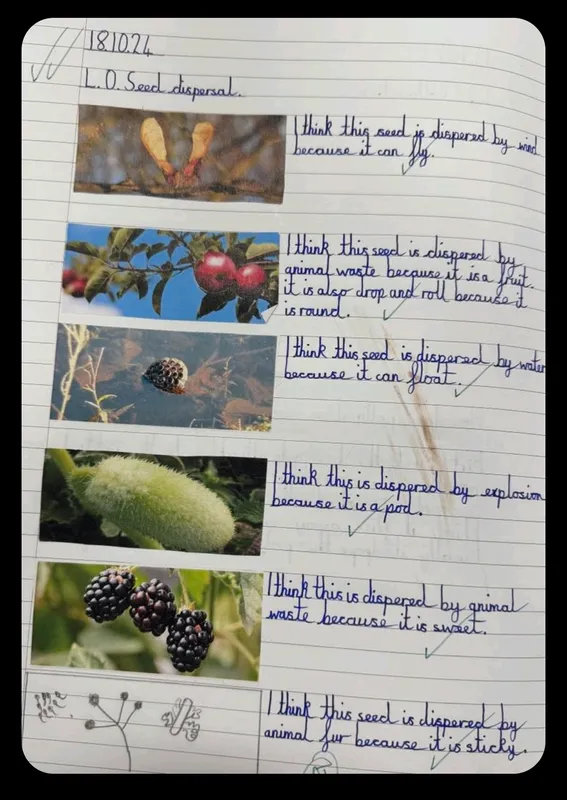 18.10.24
L.O. Seed dispersal.
I think this seed is dispered by wind
because it can fly.
I think this seed is dispered by
animal waste because it is a fruit.
it is also drop and roll because it
is round.
I think this seed is dispered by water
because it can float.
I think this is dispered by explosion
because it is a pod.
I think this is dispered by animal
waste because it is sweet.
I think this seed is dispered by
animal fur because it is sticky.